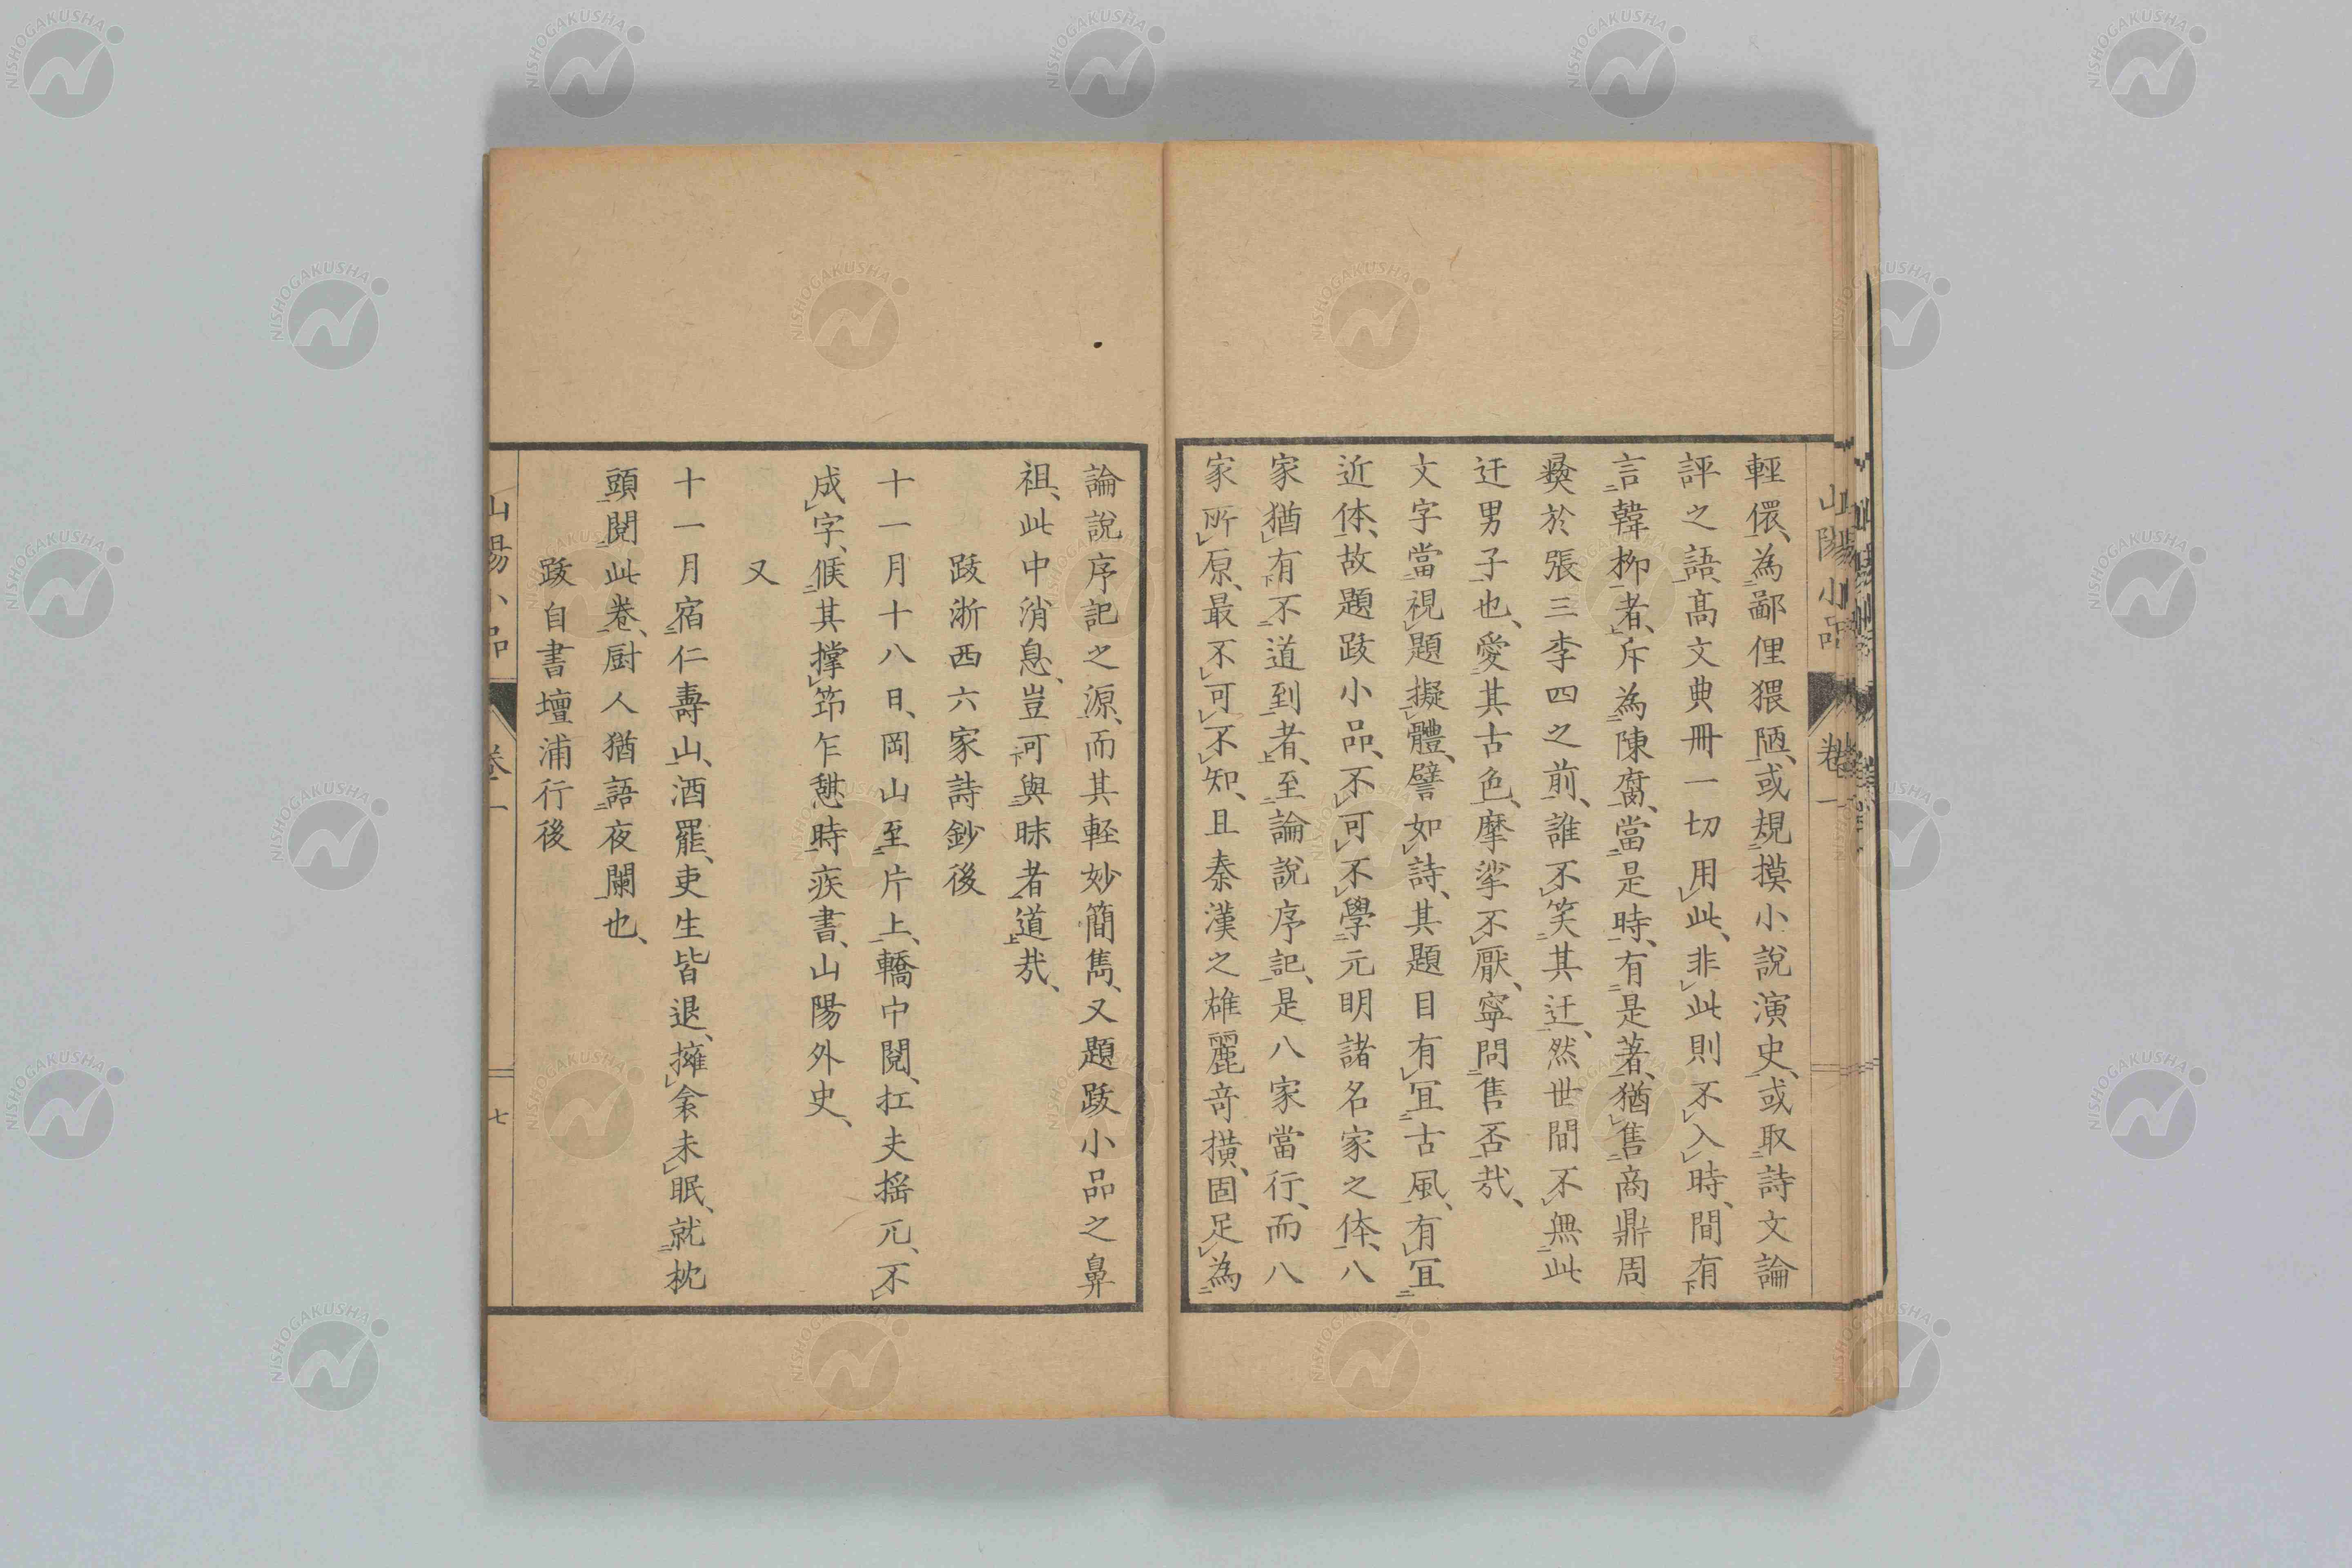 山陽小品 卷一
輕儇、為鄙俚猥陋、或規摸小說演史、或取詩文論
評之語、髙文典冊一切用此、非此則不入時、間有
言韓柳者、斥為陳腐、當是時、有是著、猶售商鼎周
彜於張三李四之前、誰不笑其迂、然世間不無此
迂男子也、愛其古色、摩挲不厭、寧問售否哉、
文字當視題擬體、譬如詩、其題目有冝古風、有冝
近体、故題跋小品、不可不學元明諸名家之体、八
家猶有不道到者、至論說序記、是八家當行、而八
家所原、最不可不知、且秦漢之雄麗竒橫、固足為
論說序記之源、而其軽妙簡雋、又題跋小品之鼻
祖、此中消息、豈可與昧者道哉、
跋浙西六家詩鈔後
十一月十八日、岡山至片上、轎中閱、扛夫搖兀、不
成字、候其撐筇乍憩時疾書、山陽外史、
又
十一月宿仁壽山、酒罷、吏生皆退、擁衾未眠、就枕
頭閱此卷、厨人猶語夜闌也、
跋自書壇浦行後
山陽小品 卷一 七